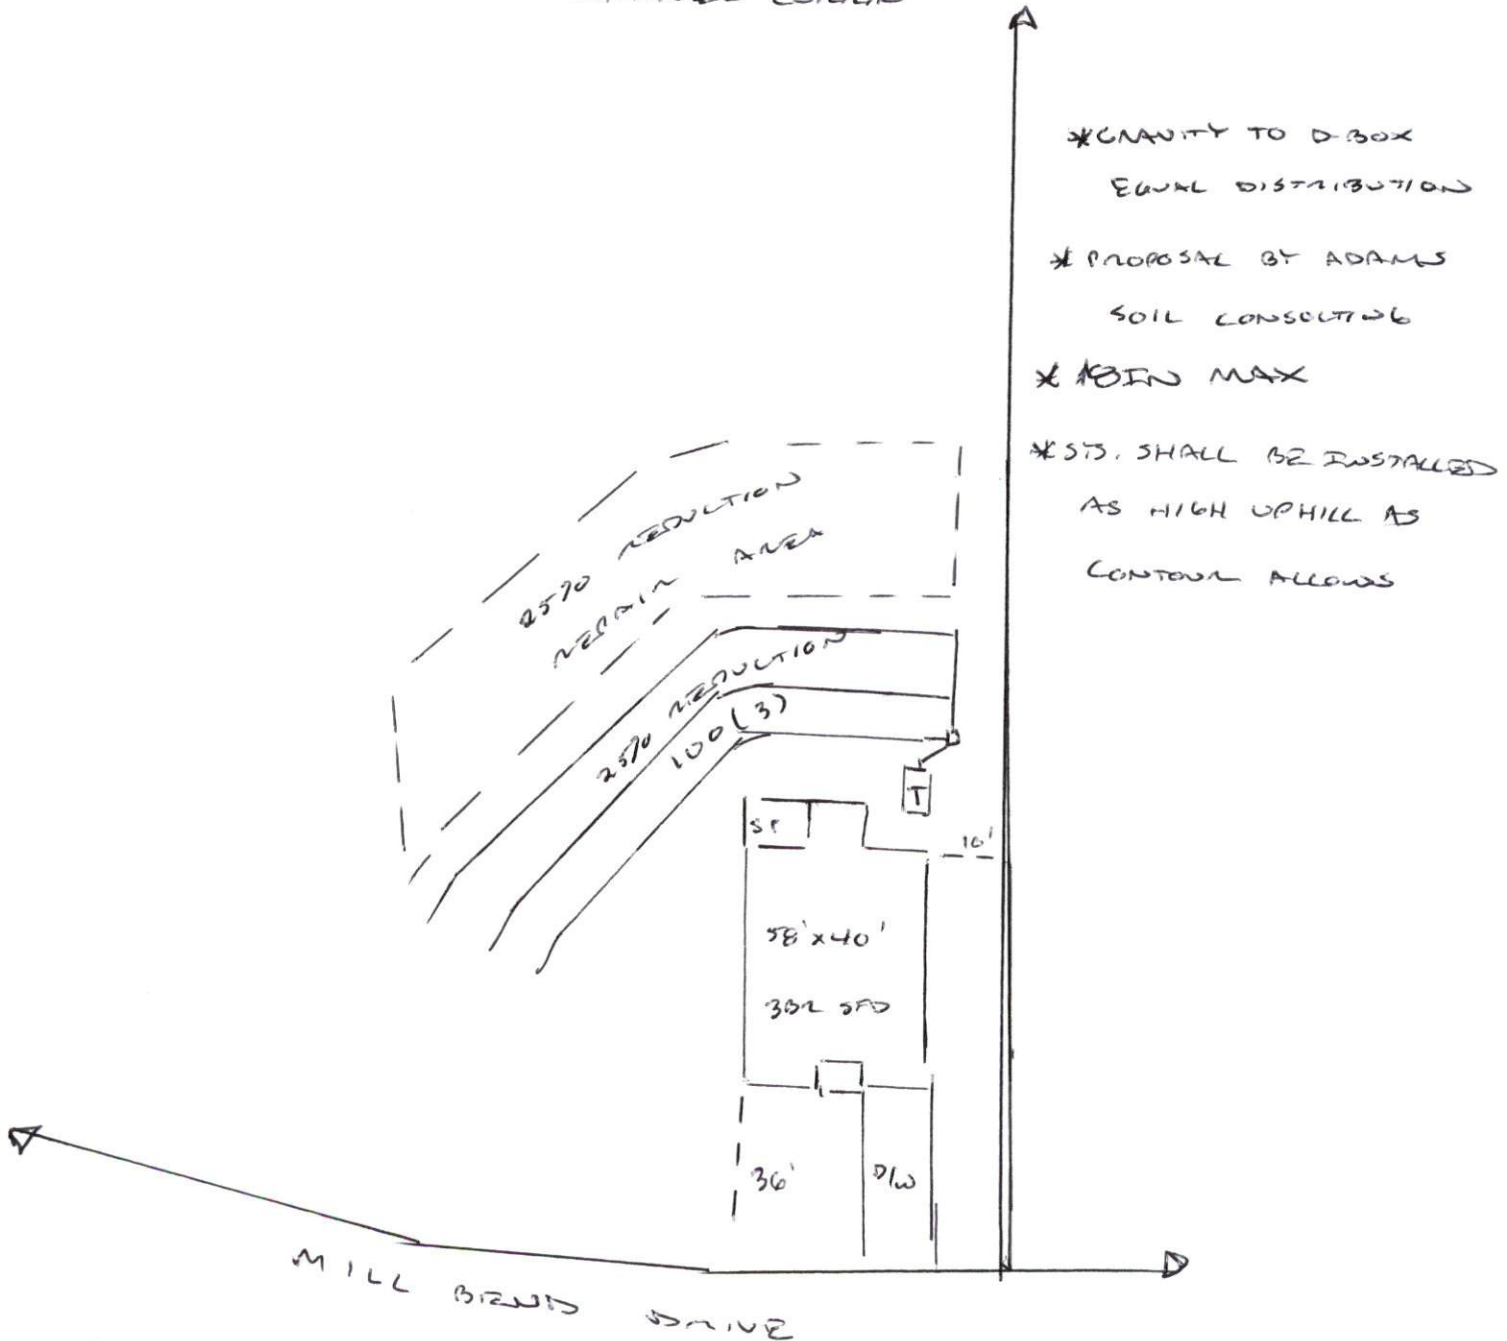 *GRAVITY TO D-BOX
EQUAL DISTRIBUTION
* PROPOSAL BY ADAMS
SOIL CONSULTING
* 18IN MAX
*SYS. SHALL BE INSTALLED
AS HIGH UPHILL AS
CONTOUR ALLOWS
25% REDUCTION
REPAIR AREA
25% REDUCTION
100(3)
T
SP
10'
58'x40'
3BR SFD
36'
D/W
MILL BEND DRIVE